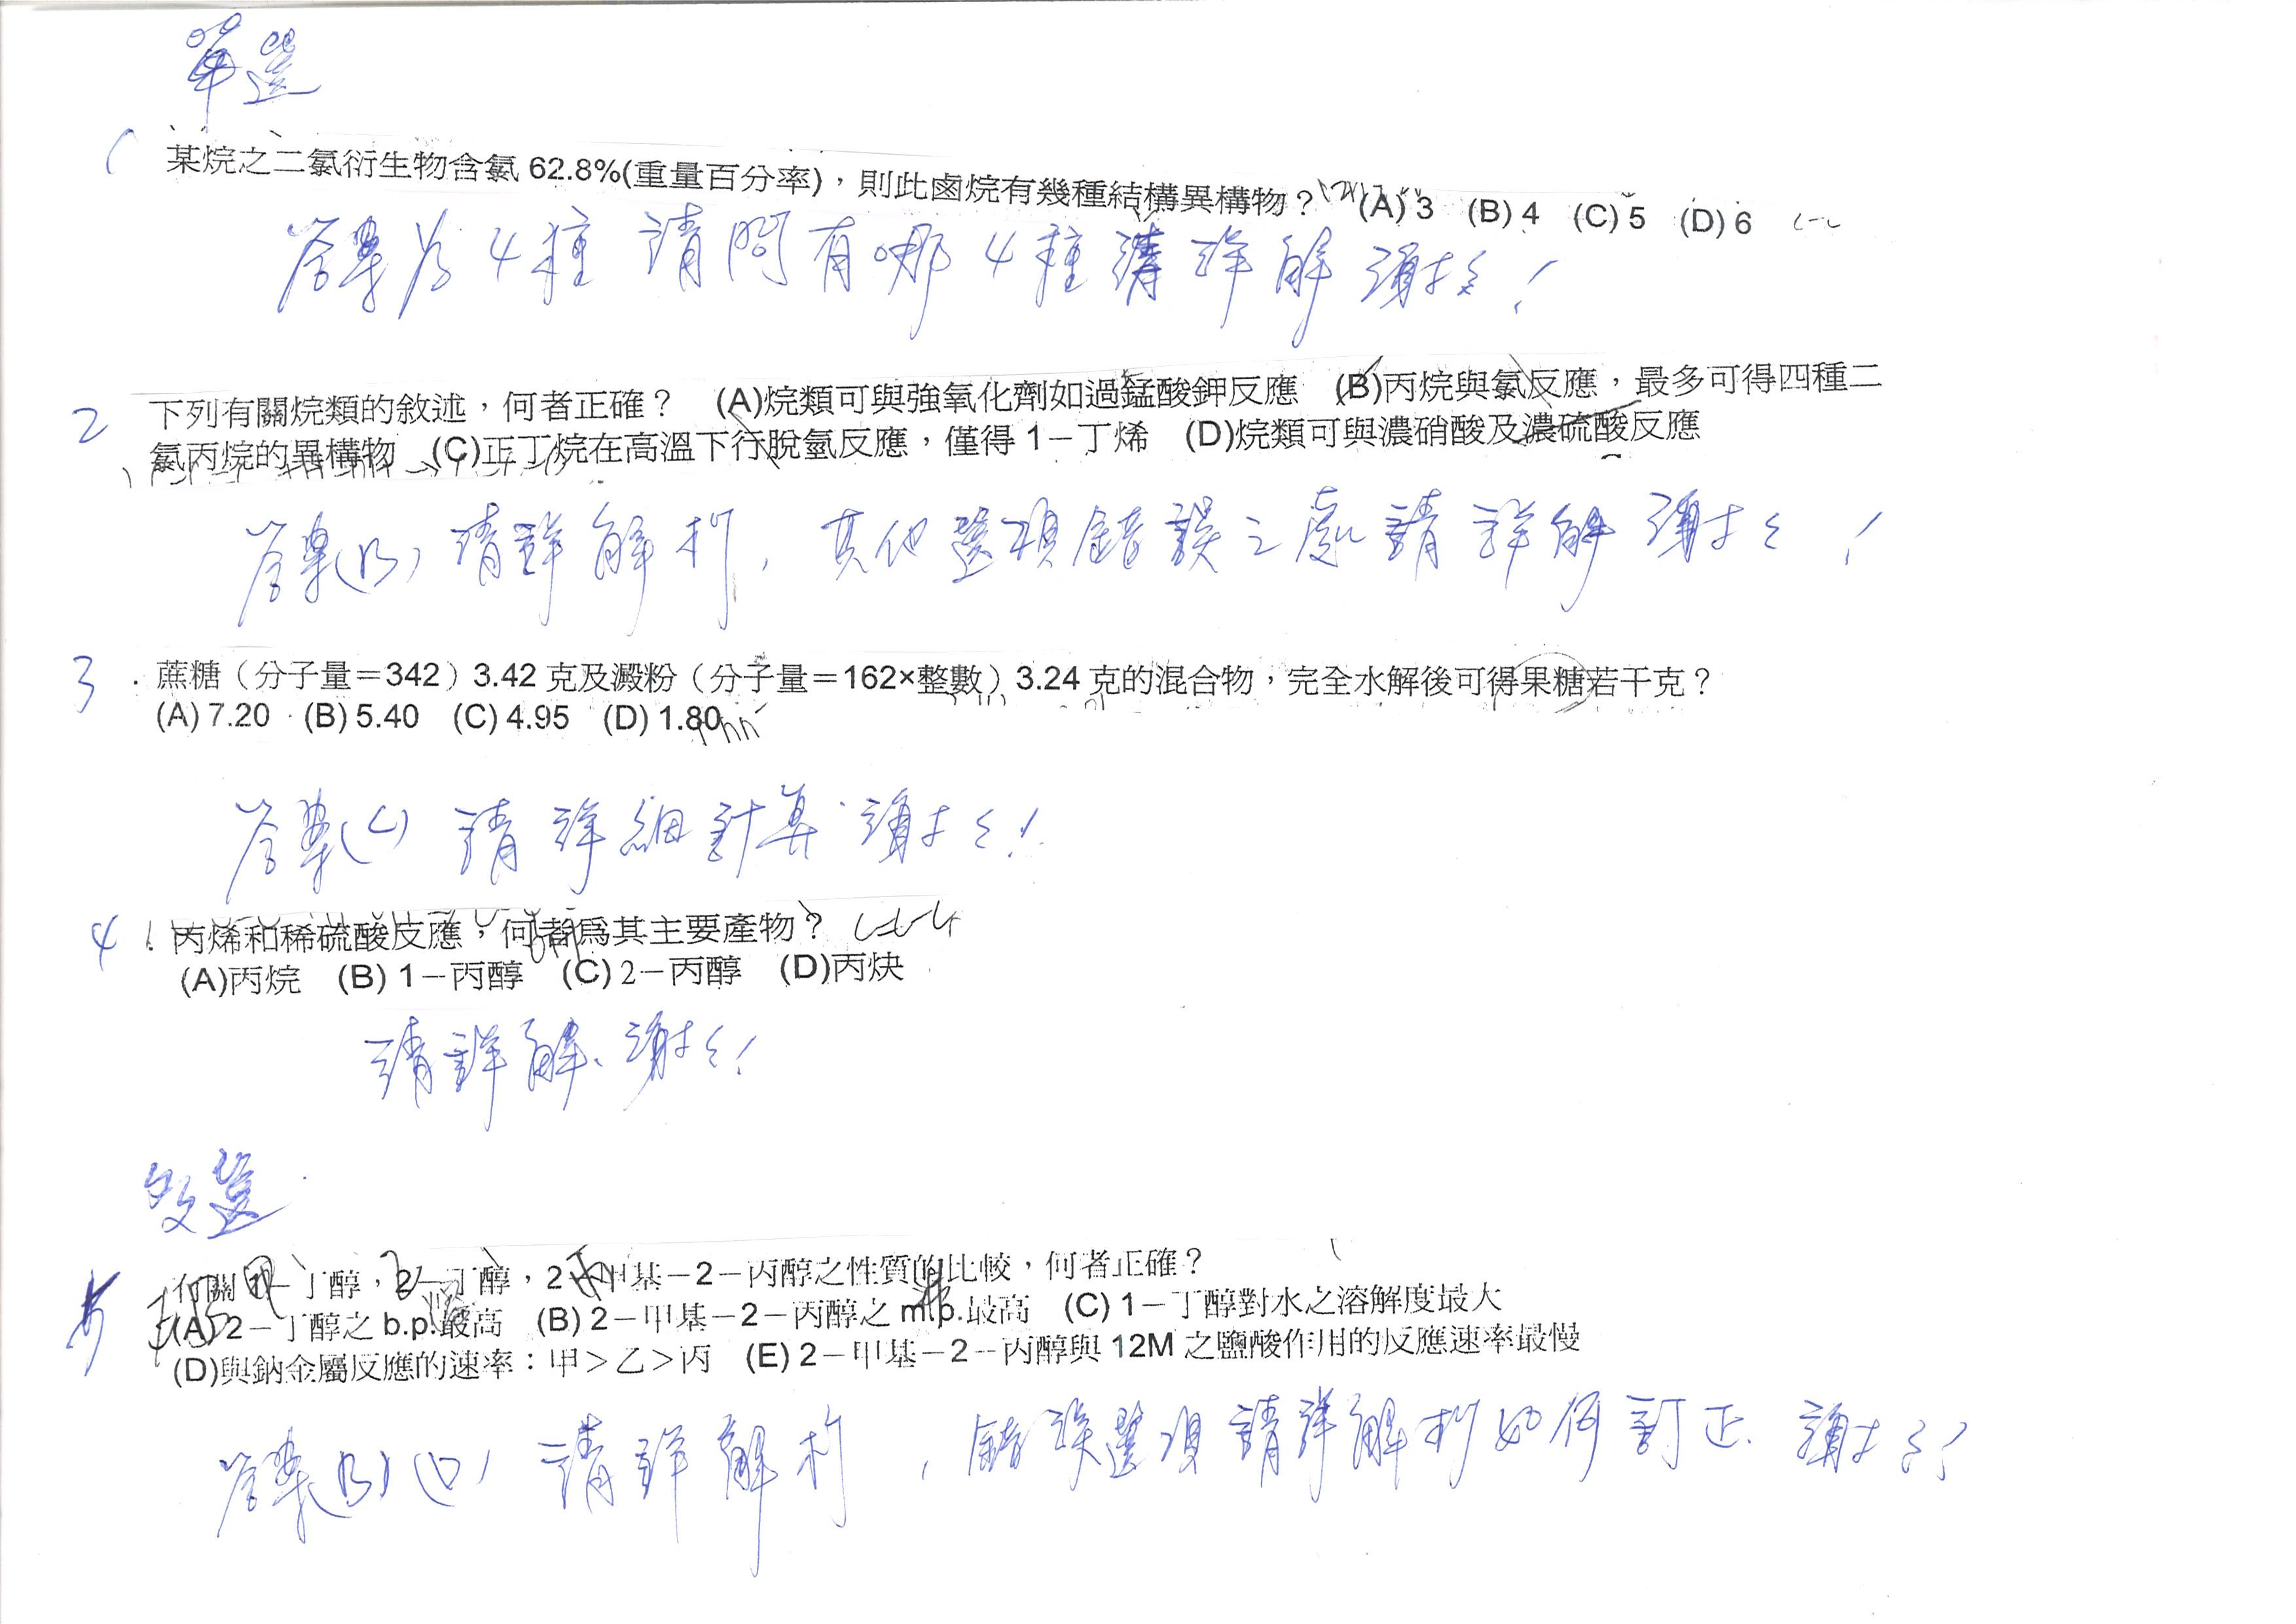 單選
1 某烷之二氯衍生物含氯 62.8%(重量百分率)，則此鹵烷有幾種結構異構物？ (A) 3 (B) 4 (C) 5 (D) 6
答案為4種 請問有哪4種 請詳解 謝謝！
2 下列有關烷類的敘述，何者正確？ (A)烷類可與強氧化劑如過錳酸鉀反應 (B)丙烷與氯反應，最多可得四種二
氯丙烷的異構物 (C)正丁烷在高溫下行脫氫反應，僅得 1－丁烯 (D)烷類可與濃硝酸及濃硫酸反應
答案(B) 請詳解析，其他選項錯誤之處請詳解 謝謝！
3 . 蔗糖（分子量＝342）3.42 克及澱粉（分子量＝162×整數）3.24 克的混合物，完全水解後可得果糖若干克？
(A) 7.20 (B) 5.40 (C) 4.95 (D) 1.80
答案 請詳細計算 謝謝！
4 丙烯和稀硫酸反應，何者為其主要產物？
(A)丙烷 (B) 1－丙醇 (C) 2－丙醇 (D)丙炔
請詳解、謝謝！
多選
5 有關 1－丁醇，2－丁醇，2－甲基－2－丙醇之性質的比較，何者正確？
(A) 2－丁醇之 b.p.最高 (B) 2－甲基－2－丙醇之 m.p.最高 (C) 1－丁醇對水之溶解度最大
(D)與鈉金屬反應的速率：甲＞乙＞丙 (E) 2－甲基－2－丙醇與 12M 之鹽酸作用的反應速率最慢
答案(B)(D) 請詳解析，錯誤選項請詳解析如何訂正 謝謝！